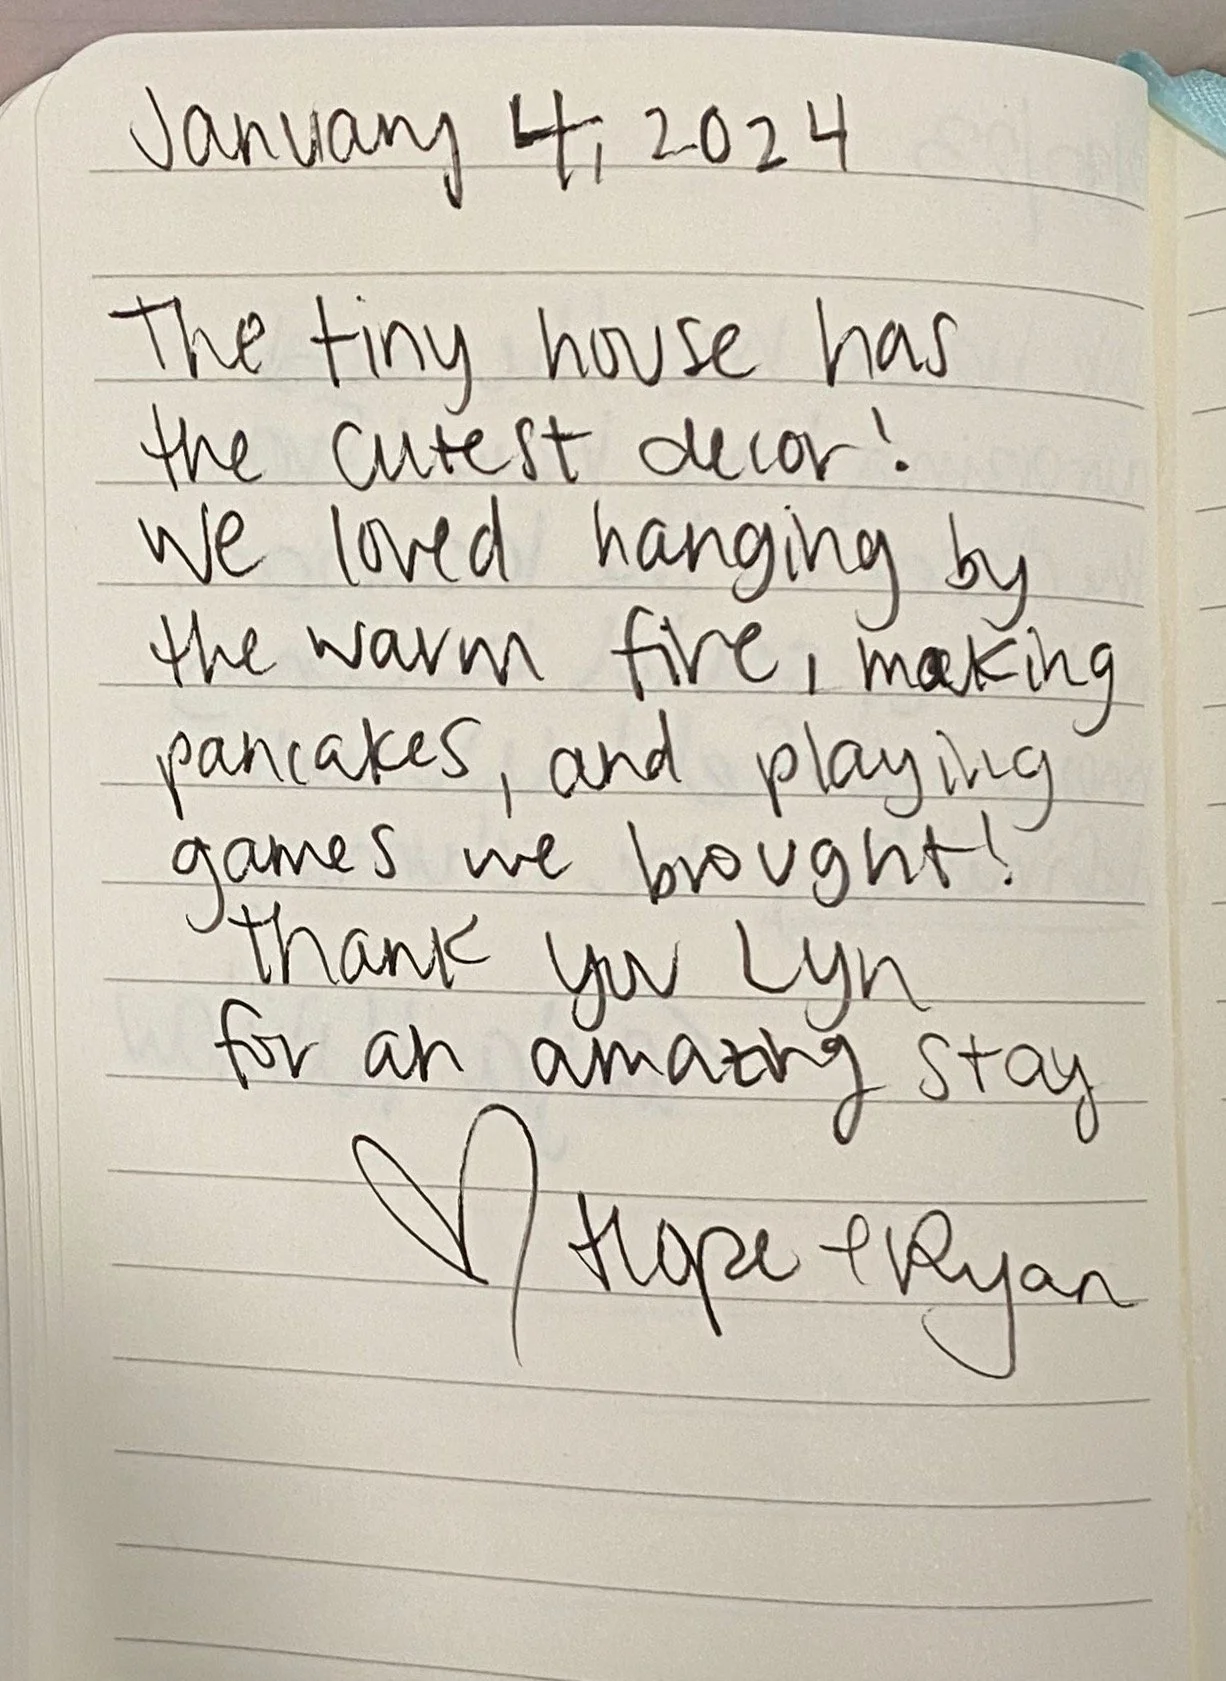 January 4, 2024
The tiny house has
the cutest decor!
We loved hanging by
the warm fire, making
pancakes, and playing
games we brought!
Thank you Lyn
for an amazing stay
♡ Hope + Ryan